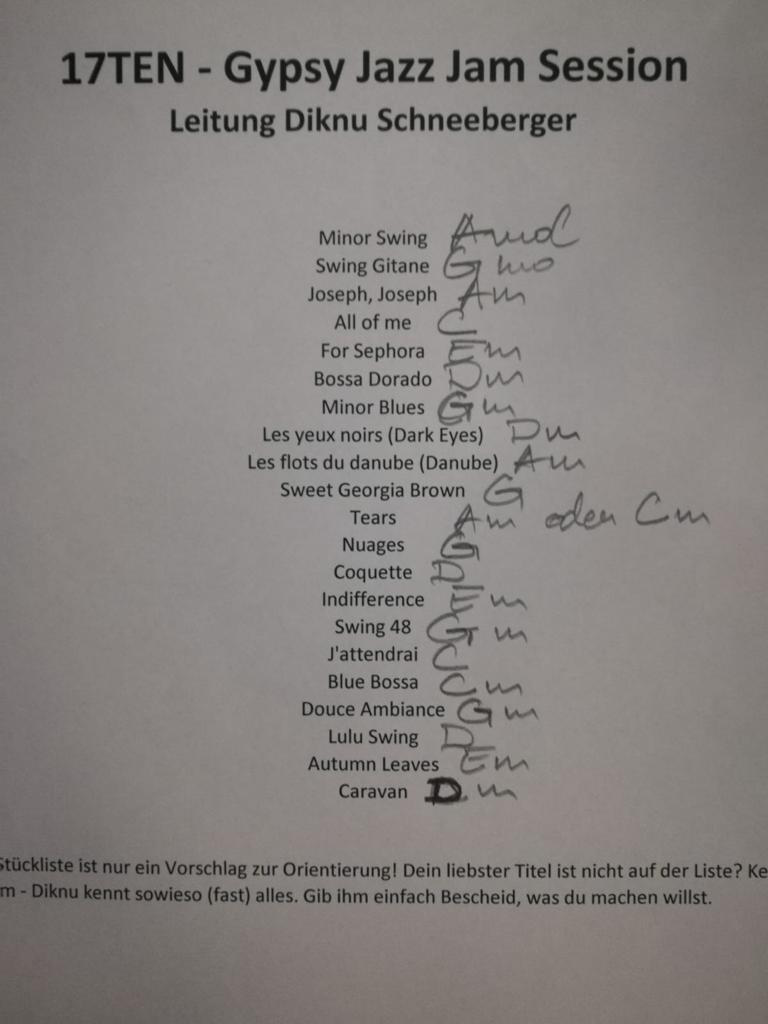 17TEN - Gypsy Jazz Jam Session
Leitung Diknu Schneeberger
Minor Swing
Swing Gitane G
Joseph, Joseph Am
All of me C
For Sephora Em
Bossa Dorado Dm
Minor Blues Gm
Les yeux noirs (Dark Eyes) Dm
Les flots du danube (Danube) Am
Sweet Georgia Brown G
Tears Am oder Cm
Nuages G
Coquette D
Indifference Em
Swing 48 Gm
J'attendrai C
Blue Bossa Cm
Douce Ambiance Gm
Lulu Swing D
Autumn Leaves Em
Caravan Dm
Stückliste ist nur ein Vorschlag zur Orientierung! Dein liebster Titel ist nicht auf der Liste?
- Diknu kennt sowieso (fast) alles. Gib ihm einfach Bescheid, was du machen willst.